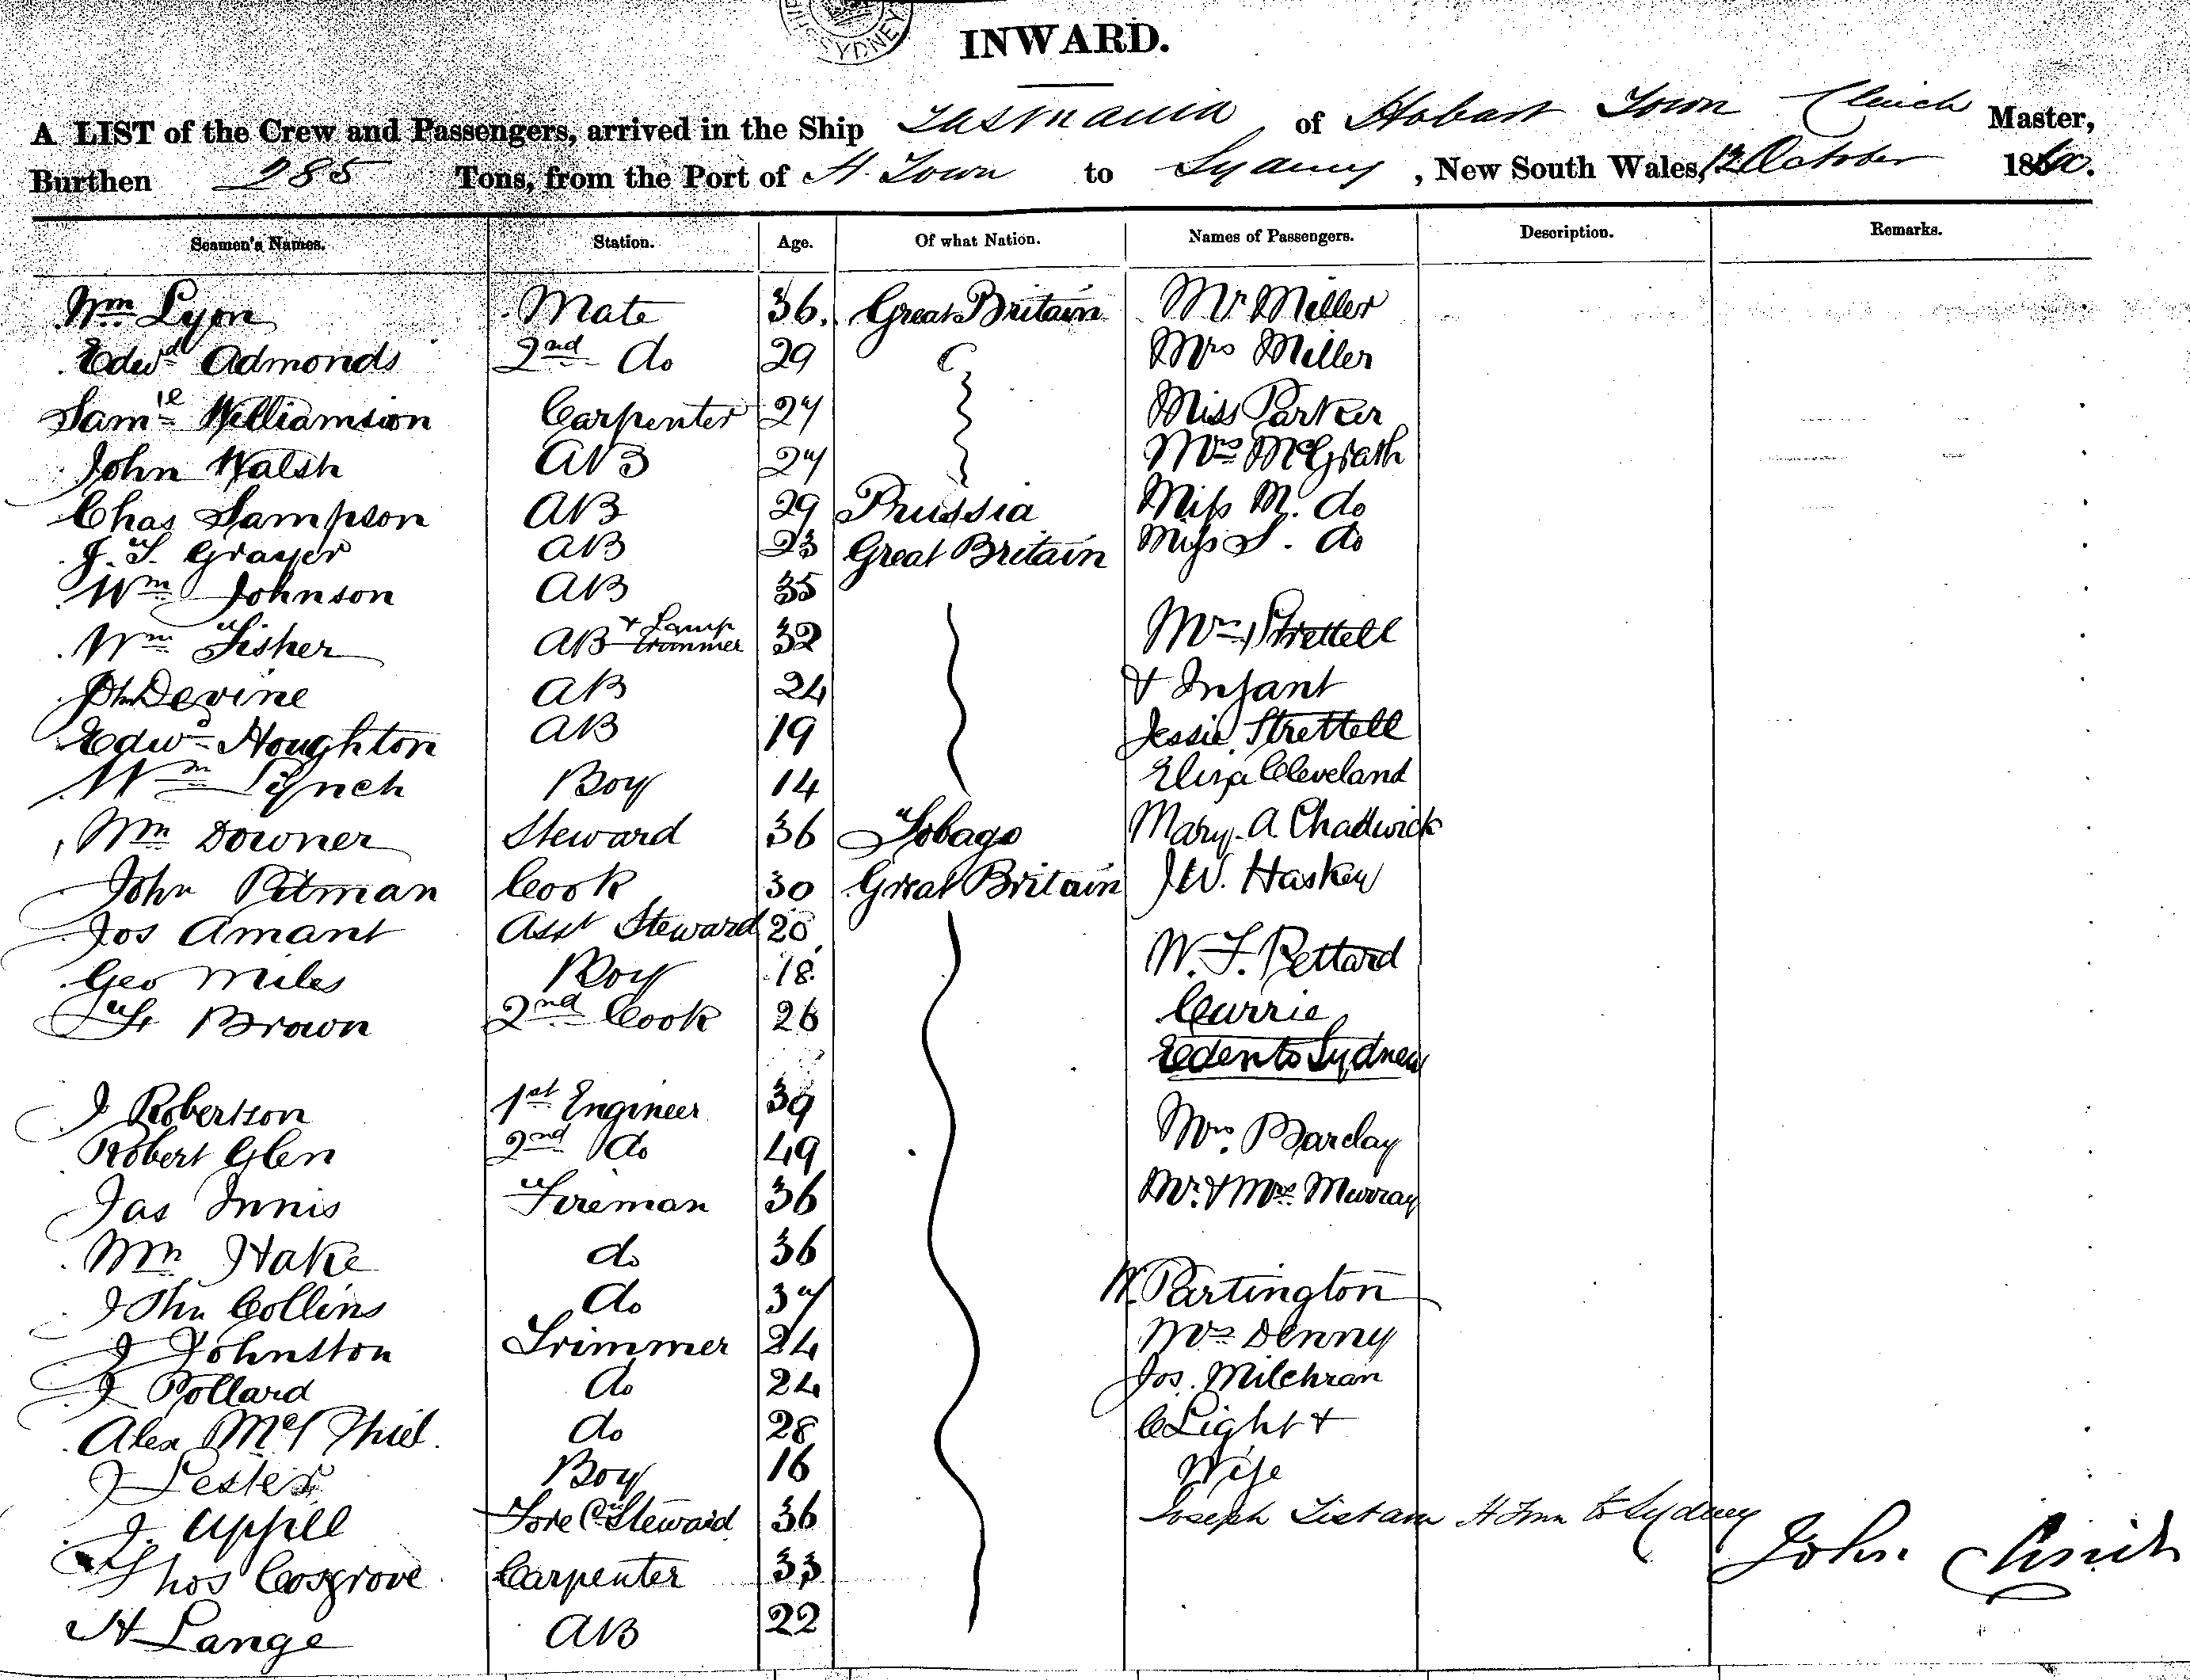 THE
SYDNEY
INWARD.
A LIST of the Crew and Passengers, arrived in the Ship Tasmania of Hobart Town Clinch Master,
Burthen 285 Tons, from the Port of H. Town to Sydney, New South Wales, 12 October 1860.
Seamen's Names. Station. Age. Of what Nation. Names of Passengers. Description. Remarks.
Wm Lyon Mate 36. Great Britain Mr Miller
Edwd Admonds 2nd do 29 Mrs Miller
Saml Williamsion Carpenter 27 Miss Parker
John Walsh AB 27 Mrs McGrath
Chas Sampson AB 29 Prussia Miss M. do
J. T. Grayer AB 23 Great Britain Miss S. do
Wm Johnson AB 35
Wm Fisher AB & Lamp trimmer 32 Mrs Strettell
Jno Devine AB 24 & Infant
Edwd Houghton AB 19 Jessie Strettell
Wm Lynch Boy 14 Eliza Cleveland
Wm Downer Steward 36 Tobago Mary A Chadwick
John Pitman Cook 30 Great Britain J W. Haskew
Jos Amant Asst Steward 20
Geo Miles Boy 18 W. F. Pettard
Brown 2nd Cook 26 Currie
Eden to Sydney
J Robertson 1st Engineer 39
Robert Glen 2nd do 49 Mrs. Barclay
Jas Innis Fireman 36 Mr. & Mrs. Murray
Wm Hake do 36
John Collins do 37 W. Partington
J Johnston Trimmer 24 Mrs Denny
J Pollard do 24 Jos. Milchran
Alex McPhiel. do 28 C Light &
J Lester Boy 16 Wife
J. Uphill Fore C. Steward 36 Joseph H Town to Sydney
Thos Cosgrove Carpenter 33 John Clinch
H Lange AB 22